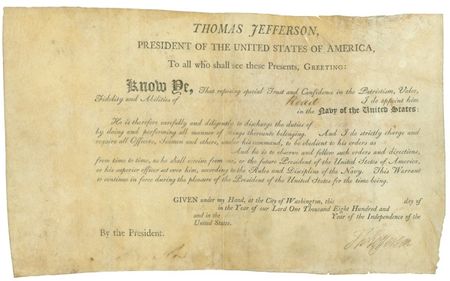 THOMAS JEFFERSON,
PRESIDENT OF THE UNITED STATES OF AMERICA,
To all who shall see these Presents, GREETING:
Know Ye, That reposing special Trust and Confidence in the Patriotism, Valor,
Fidelity and Abilities of I do appoint him
in the Navy of the United States:
He is therefore carefully and diligently to discharge the duties of
by doing and performing all manner of things thereunto belonging. And I do strictly charge and
require all Officers, Seamen and others, under his command, to be obedient to his orders as
And he is to observe and follow such orders and directions,
from time to time, as he shall receive from me, or the future President of the United States of America,
or his superior officer set over him, according to the Rules and Discipline of the Navy. This Warrant
to continue in force during the pleasure of the President of the United States for the time being.
GIVEN under my Hand, at the City of Washington, this day of
in the Year of our Lord One Thousand Eight Hundred and
and in the Year of the Independence of the
United States.
By the President.
Th Jefferson